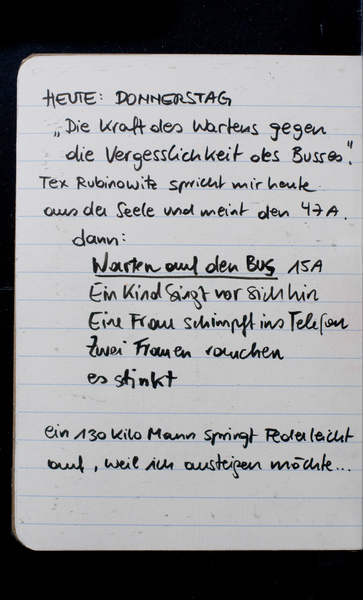 HEUTE: DONNERSTAG
„Die Kraft des Wartens gegen
die Vergesslichkeit des Busses."
Tex Rubinowitz spricht mir heute
aus der Seele und meint den 47A.
dann:
Warten auf den Bus 15A
Ein Kind singt vor sich hin
Eine Frau schimpft ins Telefon
Zwei Frauen rauchen
es stinkt
ein 130 Kilo Mann springt Federleicht
auf, weil ich austeigen möchte...